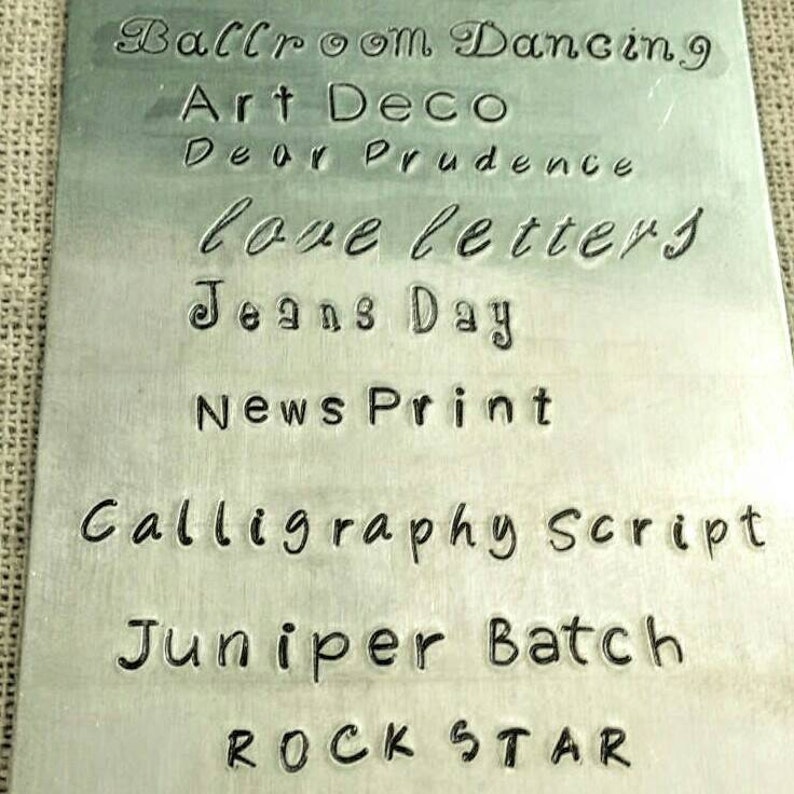 Ballroom Dancing
Art Deco
Dear Prudence
love letters
Jeans Day
News Print
Calligraphy Script
Juniper Batch
ROCK STAR